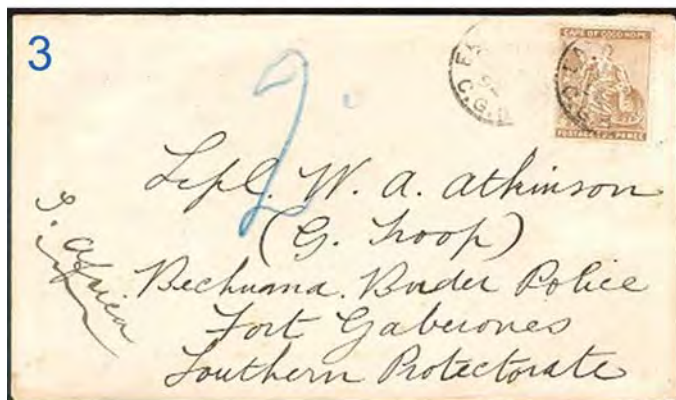 3
CAPE OF GOOD HOPE
POSTAGE PENCE
2
Lcpl. W. A. Atkinson
(G. Troop)
Bechuana. Border Police
Fort Gaberones
Southern Protectorate
S. Africa